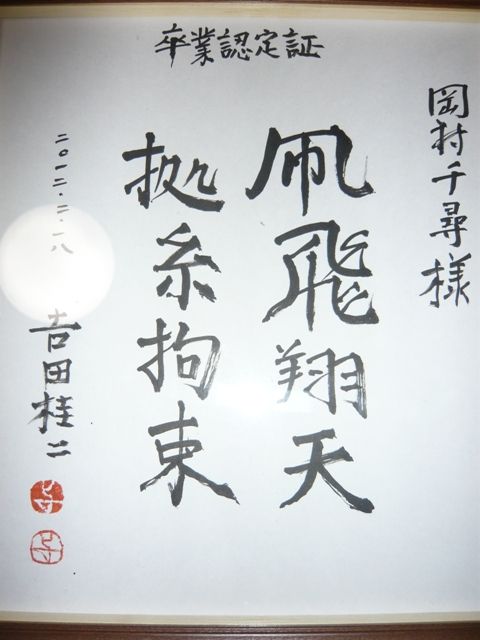 卒業認定証
岡村千尋様
凧飛翔天
拠糸拘束
二〇一二.二.一八
吉田桂二